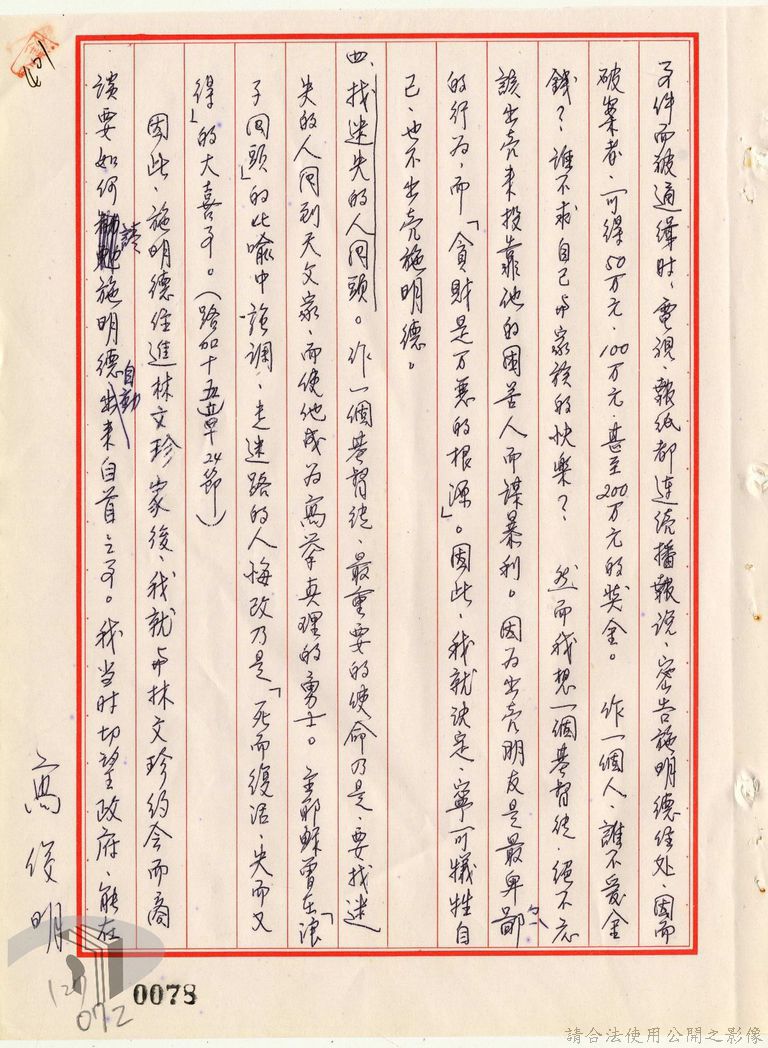 子件而被通缉时、電視、報紙都連续播報说、密告施明德住处、因而
破案者、可得50万元、100万元、甚至200万元的奖金。作一個人、誰不爱金
錢？、誰不求自己与家族的快樂？、然而我想一個基督徒、絕不忘
該出売来投靠他的困苦人而謀暴利。因为出売朋友是最卑鄙
的行为、而「貪財是万悪的根源」。因此、我就决定、寧可犠牲自
己、也不出売施明德。
四、找迷失的人囘頭。作一個基督徒、最重要的使命乃是、要找迷
失的人囘到天父家、而使他成为高举真理的勇士。主耶穌曽在「浪
子囘頭」的比喻中強調、走迷路的人悔改乃是「死而復活、失而又
得」的大喜子。（路加十五章24節）
因此、施明德住進林文珍家後、我就与林文珍约会而商
談要如何請施明德自動出来自首之子。我当时切望政府、能在
高俊明
401
127
072
0078
請合法使用公開之影像